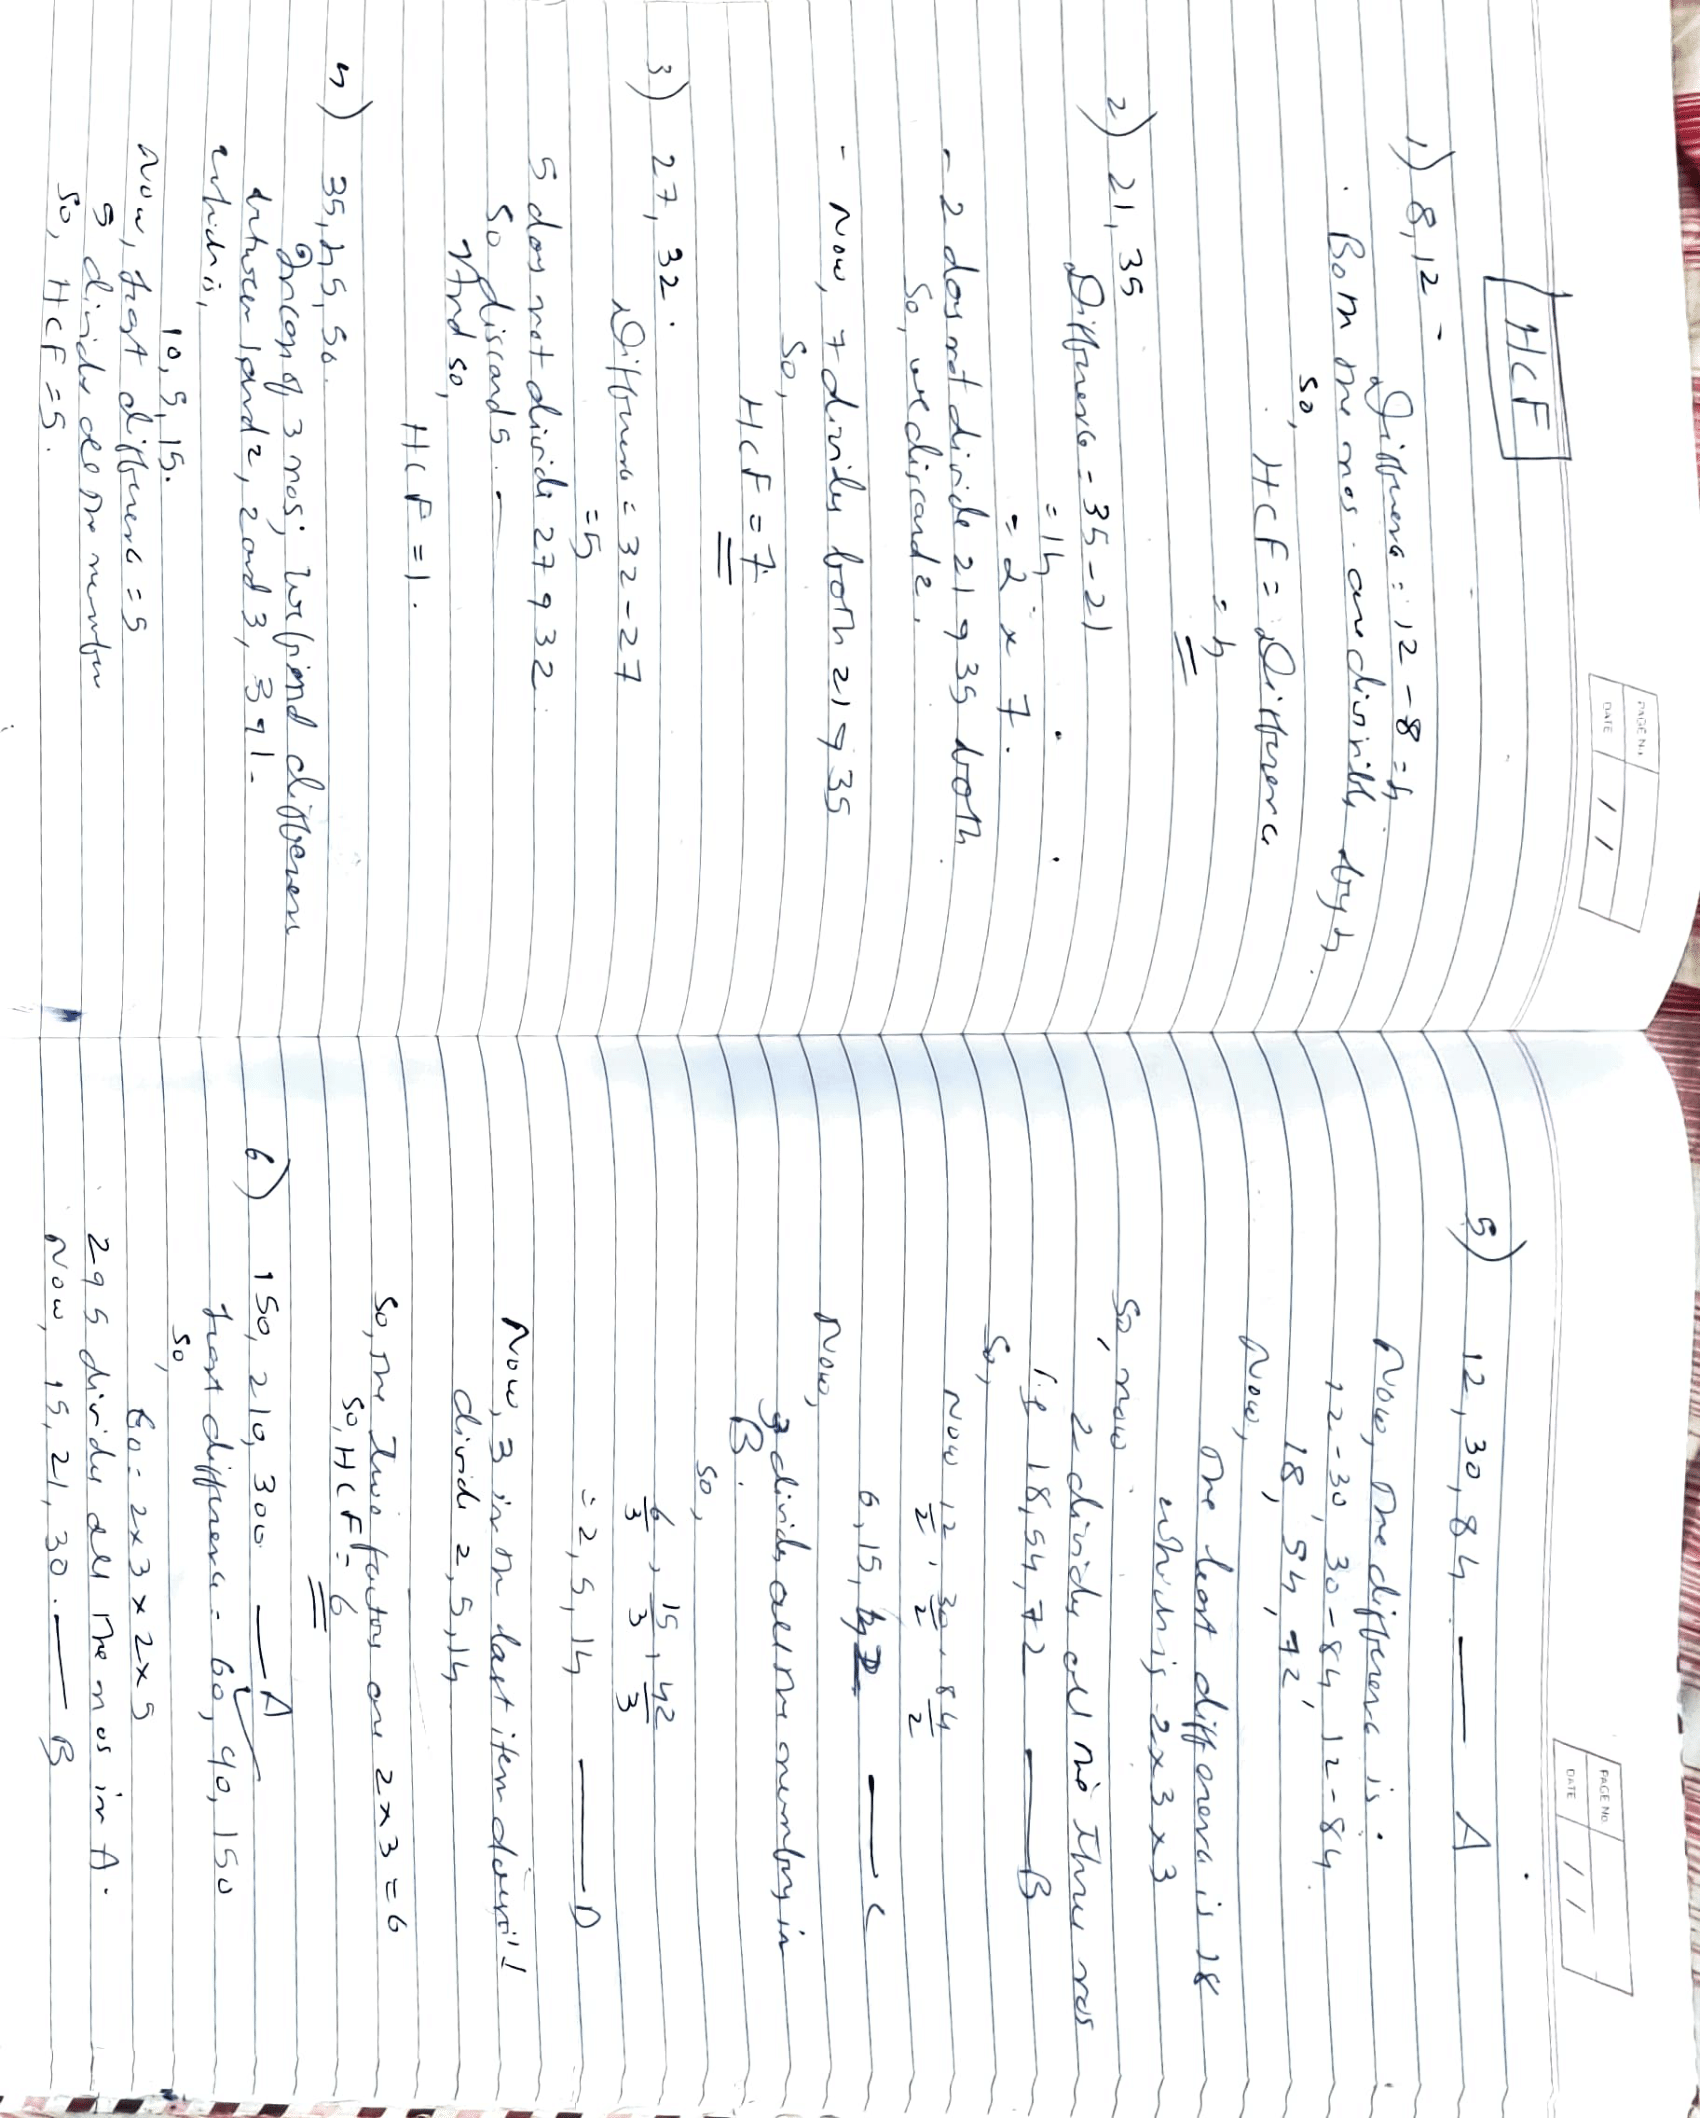 HCF
PAGE No.
DATE / /
1) 8, 12
Difference = 12 - 8 = 4
. Both the nos. are divisible by 4
so,
HCF = Difference
= 4
2) 21, 35
Difference = 35 - 21
= 14
= 2 x 7.
- 2 does not divide 21 & 35 both
So, we discard 2.
- Now, 7 divides both 21 & 35
So,
HCF = 7
3) 27, 32.
Difference = 32 - 27
= 5
5 does not divide 27 & 32.
So discard 5.
And so,
HCF = 1.
4) 35, 45, 50.
Incase of 3 nos; we find difference
between 1 and 2, 2 and 3, 3 & 1 -
which is,
10, 5, 15.
Now, least difference = 5
5 divides all the number
So, HCF = 5.
PAGE No.
DATE / /
5) 12, 30, 84 — A
Now, the difference is
12 - 30, 30 - 84, 12 - 84
18, 54, 72,
Now,
the least difference is 18
which is 2x3x3
So, now
2 divides all the three nos
18, 54, 72 — B
So,
Now 12/2, 30/2, 84/2
6, 15, 42 — C
Now,
3 divides all the numbers in
B.
So,
6/3, 15/3, 42/3
= 2, 5, 14 — D
Now, 3 in the last item doesn't
divide 2, 5, 14
So, the two factors are 2x3 = 6
So, HCF = 6
6) 150, 210, 300 — A
least difference = 60, 90, 150
So,
60 = 2x3x2x5
2 & 5 divides all the nos in A.
Now, 15, 21, 30. — B